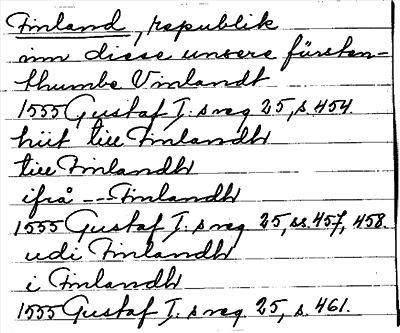 Finland, republik
inn diese unsere fürsten-
thumbe Vinlandt
1555 Gustaf I:s reg 25, s. 454.
hiit till Finlandh
till Finlandh
ifrå --- Finlandh
1555 Gustaf I:s reg 25, ss. 457, 458.
udi Finlandh
i Finlandh
1555 Gustaf I:s reg. 25, s. 461.